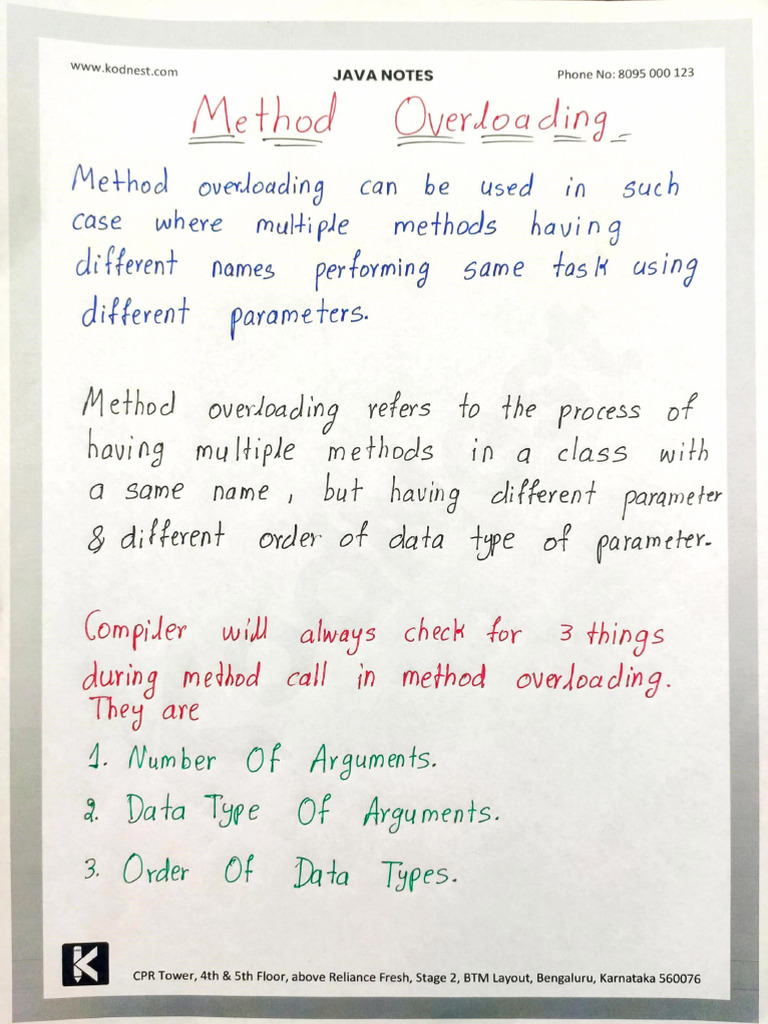 www.kodnest.com
JAVA NOTES
Phone No: 8095 000 123
Method Overloading
Method overloading can be used in such
case where multiple methods having
different names performing same task using
different parameters.
Method overloading refers to the process of
having multiple methods in a class with
a same name, but having different parameter
& different order of data type of parameter.
Compiler will always check for 3 things
during method call in method overloading.
They are
1. Number Of Arguments.
2. Data Type Of Arguments.
3. Order Of Data Types.
K
CPR Tower, 4th & 5th Floor, above Reliance Fresh, Stage 2, BTM Layout, Bengaluru, Karnataka 560076